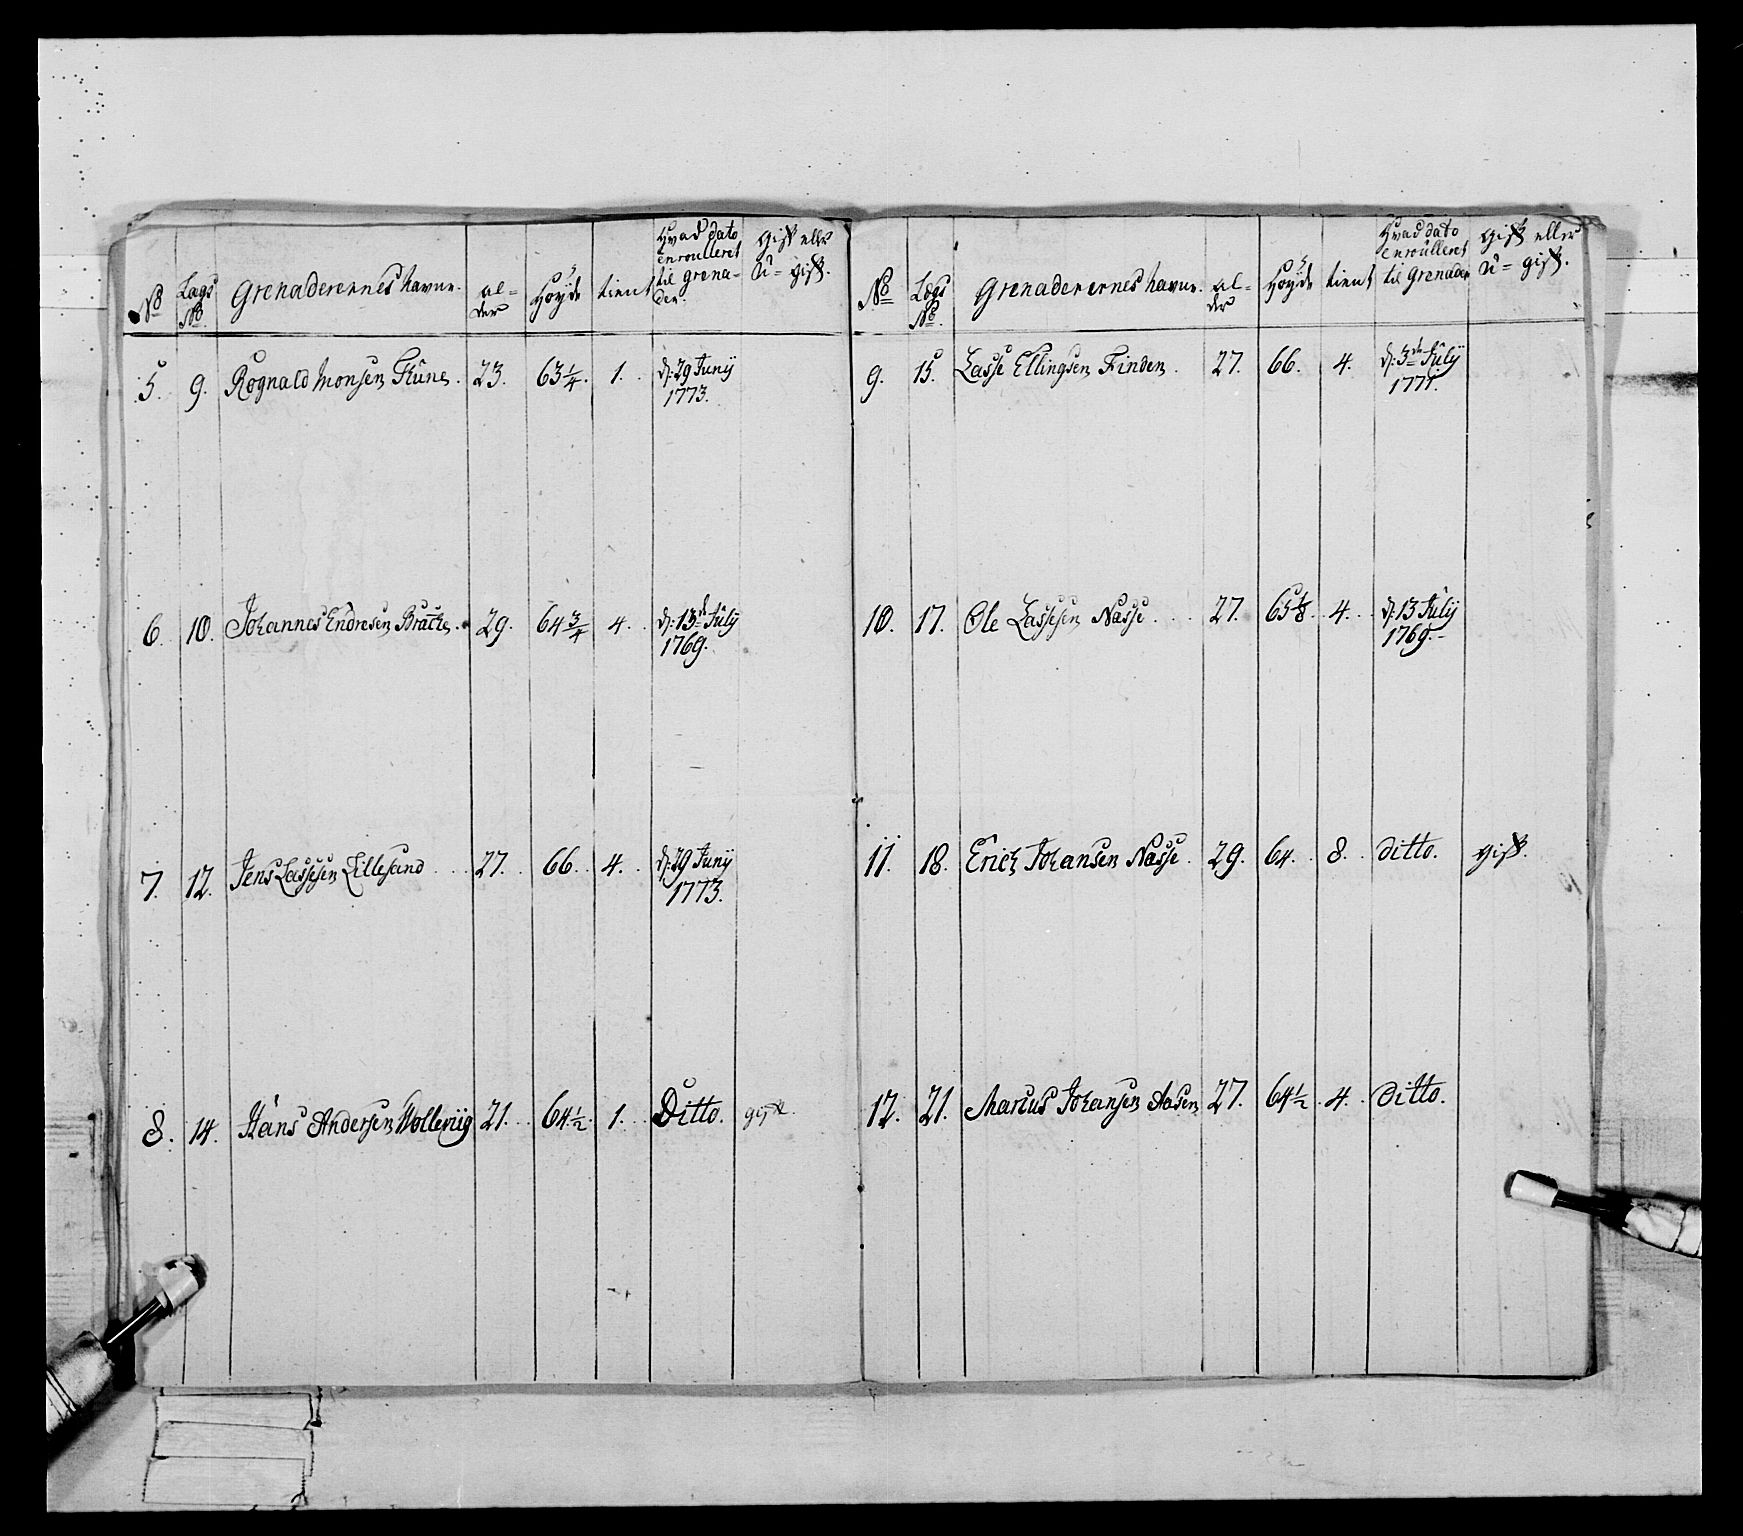 No Lægs No. Grenaderernes Navne. al-der Høyde tient Hvad dato enroulleret til Grenader. Gift eller U=gift.
5. 9. Rognald Monsen 23. 63 1/4. 1. d: 29 Junij 1773.
6. 10. Johannes Endresen 29. 64 3/4 4. d: 13de Julij 1769.
7. 12. Jens Lassesen Lillesand 27. 66. 4. d: 29 Junij 1773.
8. 14. Hans Andersen 21. 64 1/2. 1. Ditto. gift.
No Lægs No. Grenaderernes Navne. al-der Høyde tient Hvad dato enroulleret til Grenader Gift eller U=gift.
9. 15. Lasse Ellingsen Finden. 27. 66. 4. d: 3de Julij 1771.
10. 17. Ole Lassesen Næsse. 27. 65 1/8. 4. d: 13 Julij 1769.
11. 18. Erich Johansen Næsse. 29. 64. 8. ditto. gift.
12. 21. Marcus Johansen Aasen 27. 64 1/2. 4. Ditto.